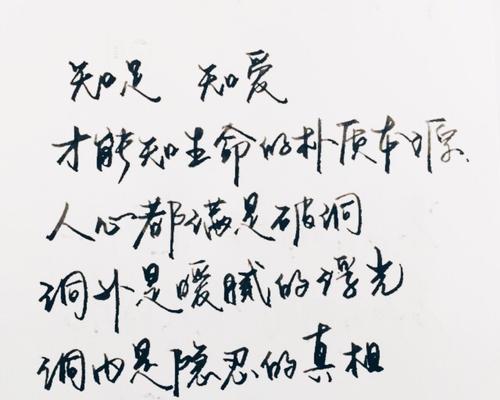 知足 知爱
才能知生命的朴质本源
人心都满是破洞
洞外是暧腻的浮光
洞内是隐忍的真相